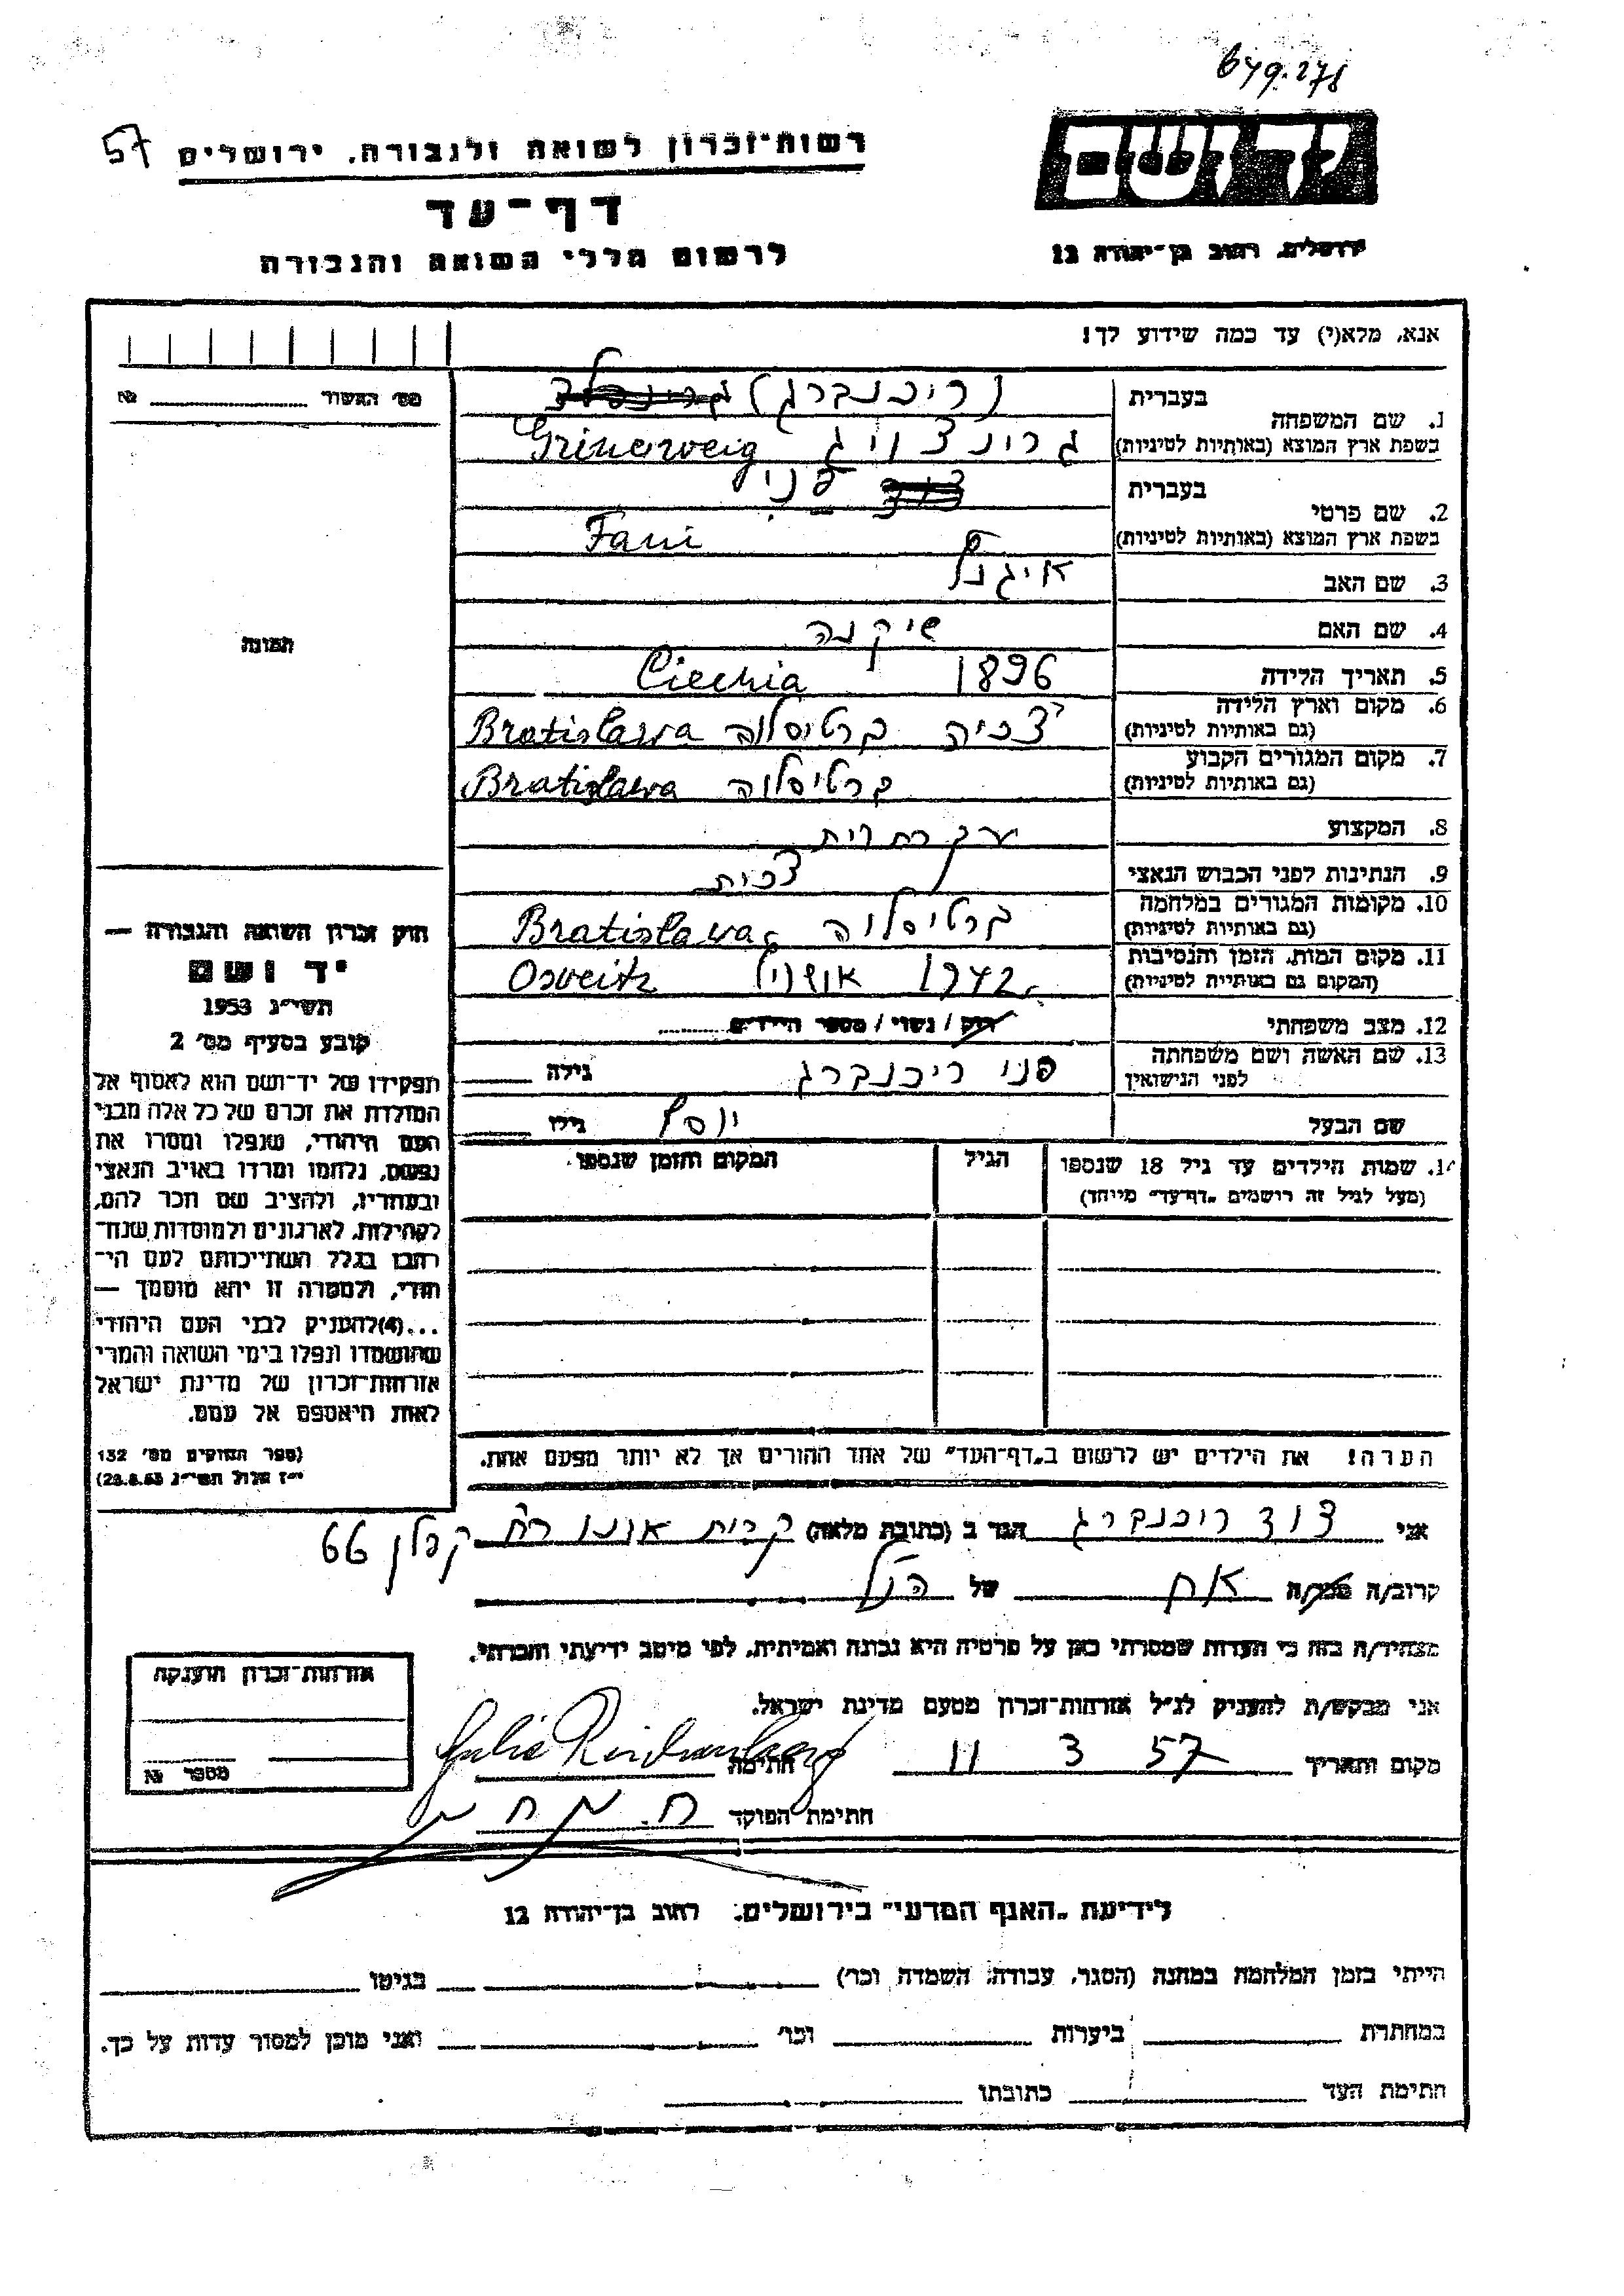 649.278
יד ושם
ירושלים, רחוב בן־יהודה 12
57
רשות־זכרון לשואה ולגבורה, ירושלים
דף־עד
לרשום חללי השואה והגבורה
אנא, מלא(י) עד כמה שידוע לך!
1. שם המשפחה
בעברית (ריכנברג)
בשפת ארץ המוצא (באותיות לטיניות) גרינצוויג Grinerweig
2. שם פרטי
בעברית פני
בשפת ארץ המוצא (באותיות לטיניות) Fani
3. שם האב
4. שם האם
5. תאריך הלידה 1896 Ciechia
6. מקום וארץ הלידה
(גם באותיות לטיניות) צכיה ברטיסלוה Bratislawa
7. מקום המגורים הקבוע
(גם באותיות לטיניות) ברטיסלוה Bratislawa
8. המקצוע עקרת בית
9. הנתינות לפני הכבוש הנאצי צכית
10. מקומות המגורים במלחמה
(גם באותיות לטיניות) ברטיסלוה Bratislawa
11. מקום המות, הזמן והנסיבות
(המקום גם באותיית לטיניות) 1942 Osveitz
12. מצב משפחתי רוק / נשוי / מספר הילדים
13. שם האשה ושם משפחתה
לפני הנישואין פני ריכנברג גילה
שם הבעל יוסף גילו
14. שמות הילדים עד גיל 18 שנספו
(מעל לגיל זה רושמים „דף־עד" מיוחד)
הגיל
המקום והזמן שנספו
הערה! את הילדים יש לרשום ב„דף־העד" של אחד ההורים אך לא יותר מפעם אחת.
מס׳ האשור №
תמונה
חוק זכרון השואה והגבורה —
יד ושם
תשי״ג 1953
קובע בסעיף מס׳ 2
תפקידו של יד־ושם הוא לאסוף אל
המולדת את זכרם של כל אלה מבני
העם היהודי, שנפלו ומסרו את
נפשם, נלחמו ומרדו באויב הנאצי
ובעוזריו, ולהציב שם וזכר להם,
לקהילות, לארגונים ולמוסדות שנח־
רבו בגלל השתייכותם לעם הי־
הודי, ולמטרה זו יהא מוסמך —
...(4)להעניק לבני העם היהודי
שהושמדו ונפלו בימי השואה והמרי
אזרחות־זכרון של מדינת ישראל
לאות היאספם אל עמם.
(ספר החוקים מס׳ 132
י״ז אלול תשי״ג 28.8.53)
אני דוד ריכנברג הגר ב (כתובת מלאה) קרית אונו רח קפלן 66
קרוב/ה מכר/ה אח של הנ״ל
מצהיר/ה בזה כי העדות שמסרתי כאן על פרטיה היא נכונה ואמיתית, לפי מיטב ידיעתי והכרתי.
אני מבקש/ת להעניק לנ״ל אזרחות־זכרון מטעם מדינת ישראל.
מקום ותאריך 57 3 11 חתימה
חתימת הפוקד
אזרחות־זכרון הוענקה
מספר №
לידיעת „האגף המדעי" בירושלים, רחוב בן־יהודה 12
הייתי בזמן המלחמה במחנה (הסגר, עבודה, השמדה וכר׳) בגיטו
במחתרת ביערות וכר׳ ואני מוכן למסור עדות על כך.
חתימת העד כתובתו